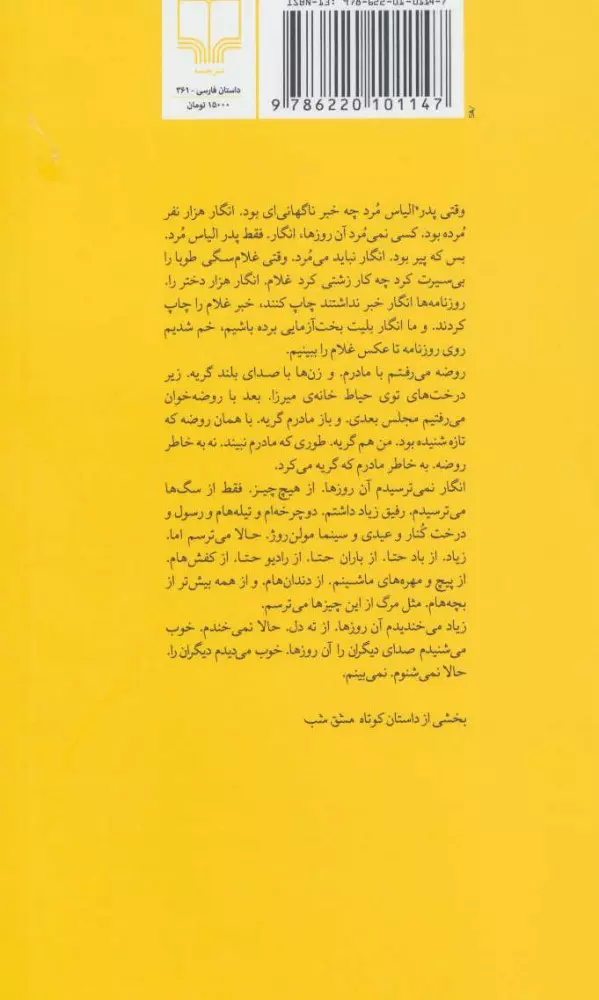 ISBN-13: 978-622-01-0114-7
نشر چشمه
داستان فارسی - ۳۶۱
۱۵۰۰۰ تومان
9 786220 101147
وقتی پدر الیاس مُرد چه خبر ناگهانی‌ای بود. انگار هزار نفر
مُرده بود. کسی نمی‌مُرد آن روزها، انگار. فقط پدر الیاس مُرد.
بس که پیر بود. انگار نباید می‌مُرد. وقتی غلام‌سگی طوبا را
بی‌سیرت کرد چه کار زشتی کرد غلام. انگار هزار دختر را.
روزنامه‌ها انگار خبر نداشتند چاپ کنند، خبر غلام را چاپ
کردند. و ما انگار بلیت بخت‌آزمایی برده باشیم، خم شدیم
روی روزنامه تا عکس غلام را ببینیم.
روضه می‌رفتم با مادرم. و زن‌ها با صدای بلند گریه. زیر
درخت‌های توی حیاط خانه‌ی میرزا. بعد با روضه‌خوان
می‌رفتیم مجلس بعدی. و باز مادرم گریه. با همان روضه که
تازه شنیده بود. من هم گریه. طوری که مادرم نبیند. نه به خاطر
روضه. به خاطر مادرم که گریه می‌کرد.
انگار نمی‌ترسیدم آن روزها. از هیچ‌چیز. فقط از سگ‌ها
می‌ترسیدم. رفیق زیاد داشتم. دوچرخه‌ام و تیله‌هام و رسول و
درخت کُنار و عیدی و سینما مولن‌روژ. حالا می‌ترسم اما.
زیاد. از باد حتا. از باران حتا. از رادیو حتا. از کفش‌هام.
از پیچ و مهره‌های ماشینم. از دندان‌هام. و از همه بیش‌تر از
بچه‌هام. مثل مرگ از این چیزها می‌ترسم.
زیاد می‌خندیدم آن روزها. از ته دل. حالا نمی‌خندم. خوب
می‌شنیدم صدای دیگران را آن روزها. خوب می‌دیدم دیگران را.
حالا نمی‌شنوم. نمی‌بینم.
بخشی از داستان کوتاه مشق شب